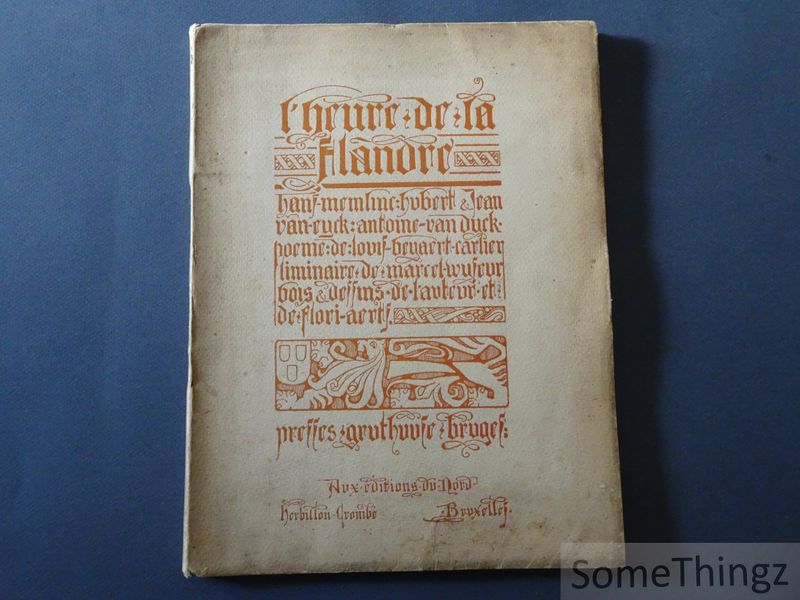 l'heure·de·la
flandre
hans·memlinc:hubert & Jean
van·eyck:antoine·van dyck·
poeme:de·louis·beyaert·carlier
liminaire·de·marcel·wyseur
bois & dessins·de·l'auteur·et·
de·flori·aerts
presses·gruthuuse·bruges:
Aux·editions·du·Nord
herbillon·Crombé Bruxelles.
SomeThingz